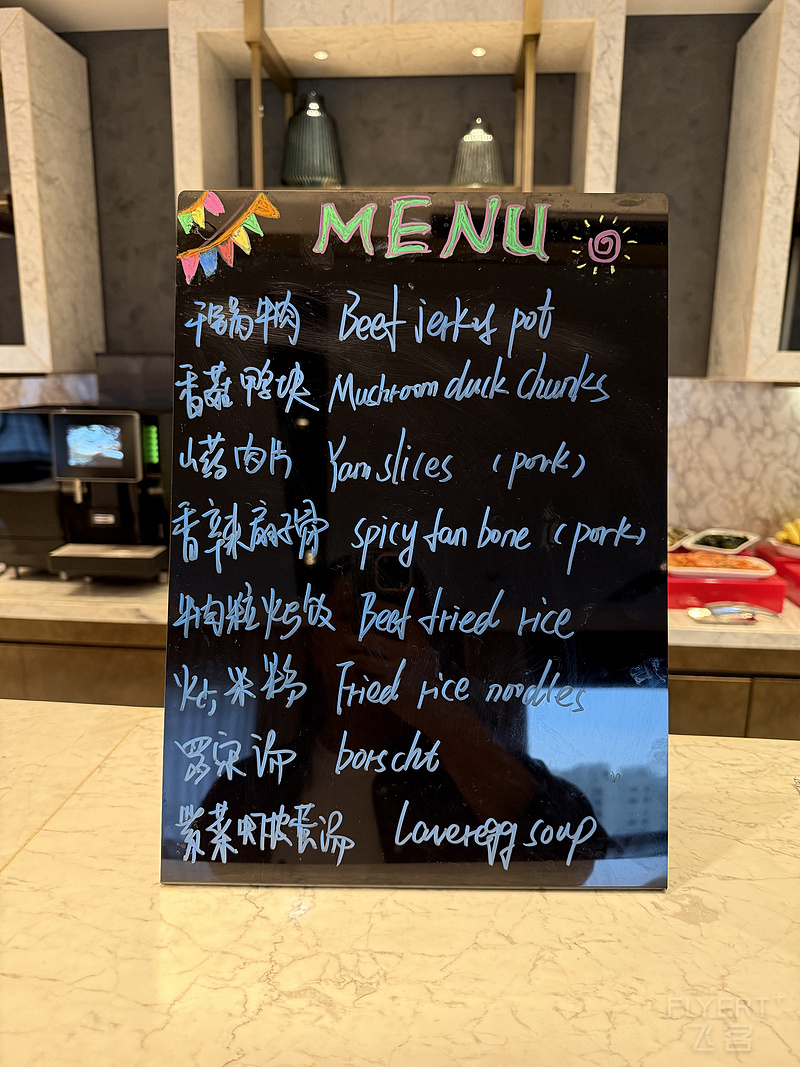 MENU
干锅牛肉 Beef jerky pot
香菇鸭块 Mushroom duck chunks
山药肉片 Yam slices (pork)
香辣扇子骨 spicy fan bone (pork)
牛肉粒炒饭 Beef fried rice
炒米粉 Fried rice noodles
罗宋汤 borscht
紫菜虾皮蛋汤 Laver egg soup
FLYERT
飞客